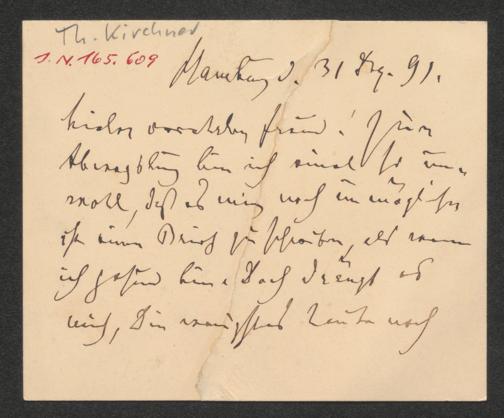 Th. Kirchner
I. N. 165.609
Hamburg d. 31 Dez. 91.
Freund! Zur
bin ich einmal so un-
wohl, daß es mir noch unmöglicher
ist einen Brief zu schreiben, als wenn
ich gesund bin. Doch drängt es
mich, Dir wenigstens heute noch